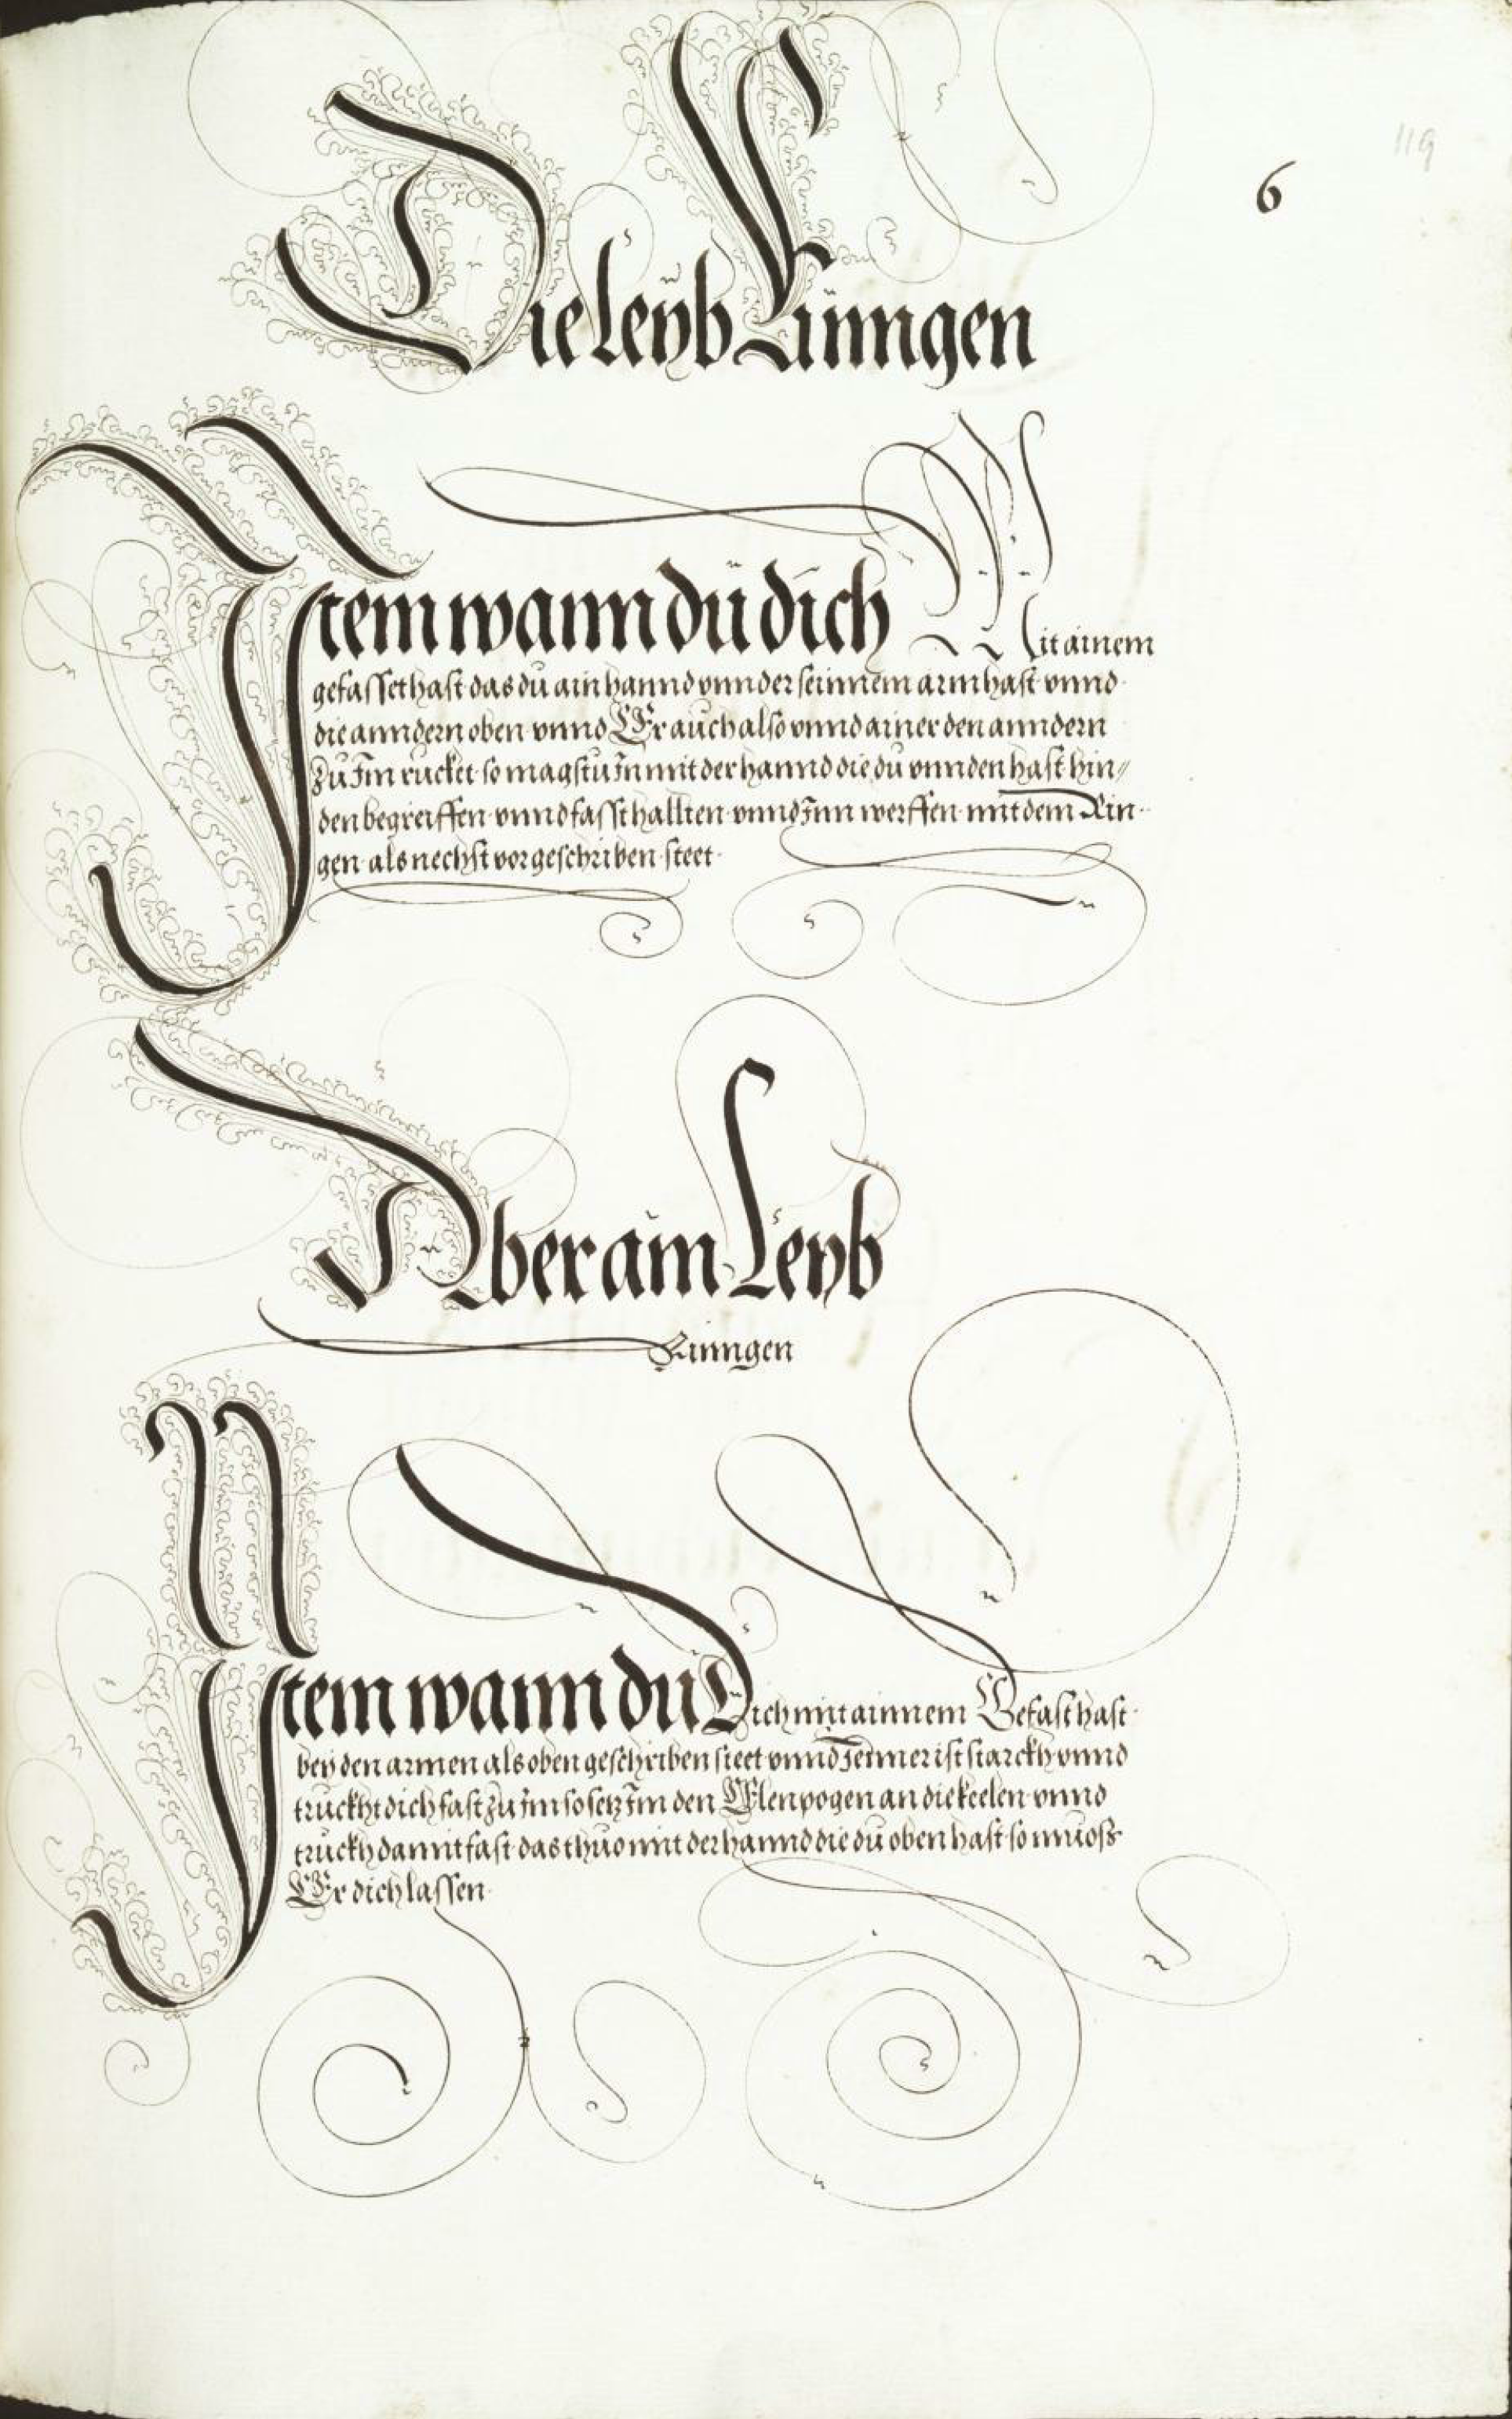 119
6
Die leyb Ringen
Item wann dü dich Mit ainem
gefasset hast das dü ain hannd vnnder seinnem arm hast vnnd
die anndern oben vnnd Er auch also vnnd ainer den anndern
zu Im rucket so magstu In mit der hannd die dü vnnden hast hin//
den begreiffen vnnd fasst hallten vnnd Inn werffen mit dem Rin
gen als nechst vorgeschriben steet
Aber ain Leyb
Ringen
Item wann dü Dich mit ainnem Gefast hast
bey den armen als oben geschriben steet vnnd Jenner ist starckh vnnd
truckht dich fast zu Im so setz Im den Elenpogen an die keelen vnnd
truckh damit fast das thuo mit der hannd die dü oben hast so muoss
Er dich lassen